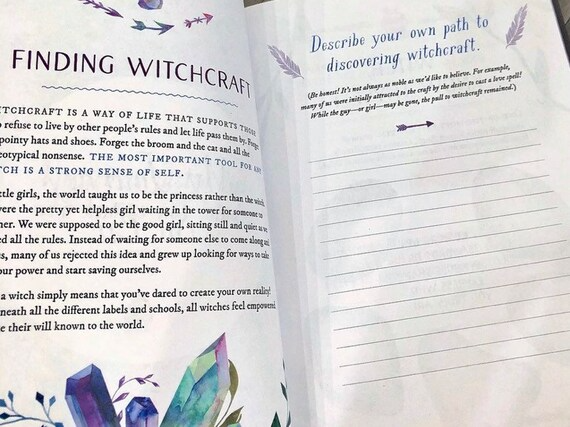 FINDING WITCHCRAFT
ITCHCRAFT IS A WAY OF LIFE THAT SUPPORTS THOSE
o refuse to live by other people's rules and let life pass them by. Forget
pointy hats and shoes. Forget the broom and the cat and all the
eotypical nonsense. THE MOST IMPORTANT TOOL FOR ANY
TCH IS A STRONG SENSE OF SELF.
ttle girls, the world taught us to be the princess rather than the witch.
were the pretty yet helpless girl waiting in the tower for someone to
her. We were supposed to be the good girl, sitting still and quiet as we
ed all the rules. Instead of waiting for someone else to come along and
us, many of us rejected this idea and grew up looking for ways to take
our power and start saving ourselves.
a witch simply means that you've dared to create your own reality!
neath all the different labels and schools, all witches feel empowered
e their will known to the world.
Describe your own path to
discovering witchcraft.
(Be honest! It's not always as noble as we'd like to believe. For example,
many of us were initially attracted to the craft by the desire to cast a love spell!
While the guy—or girl—may be gone, the pull to witchcraft remained.)